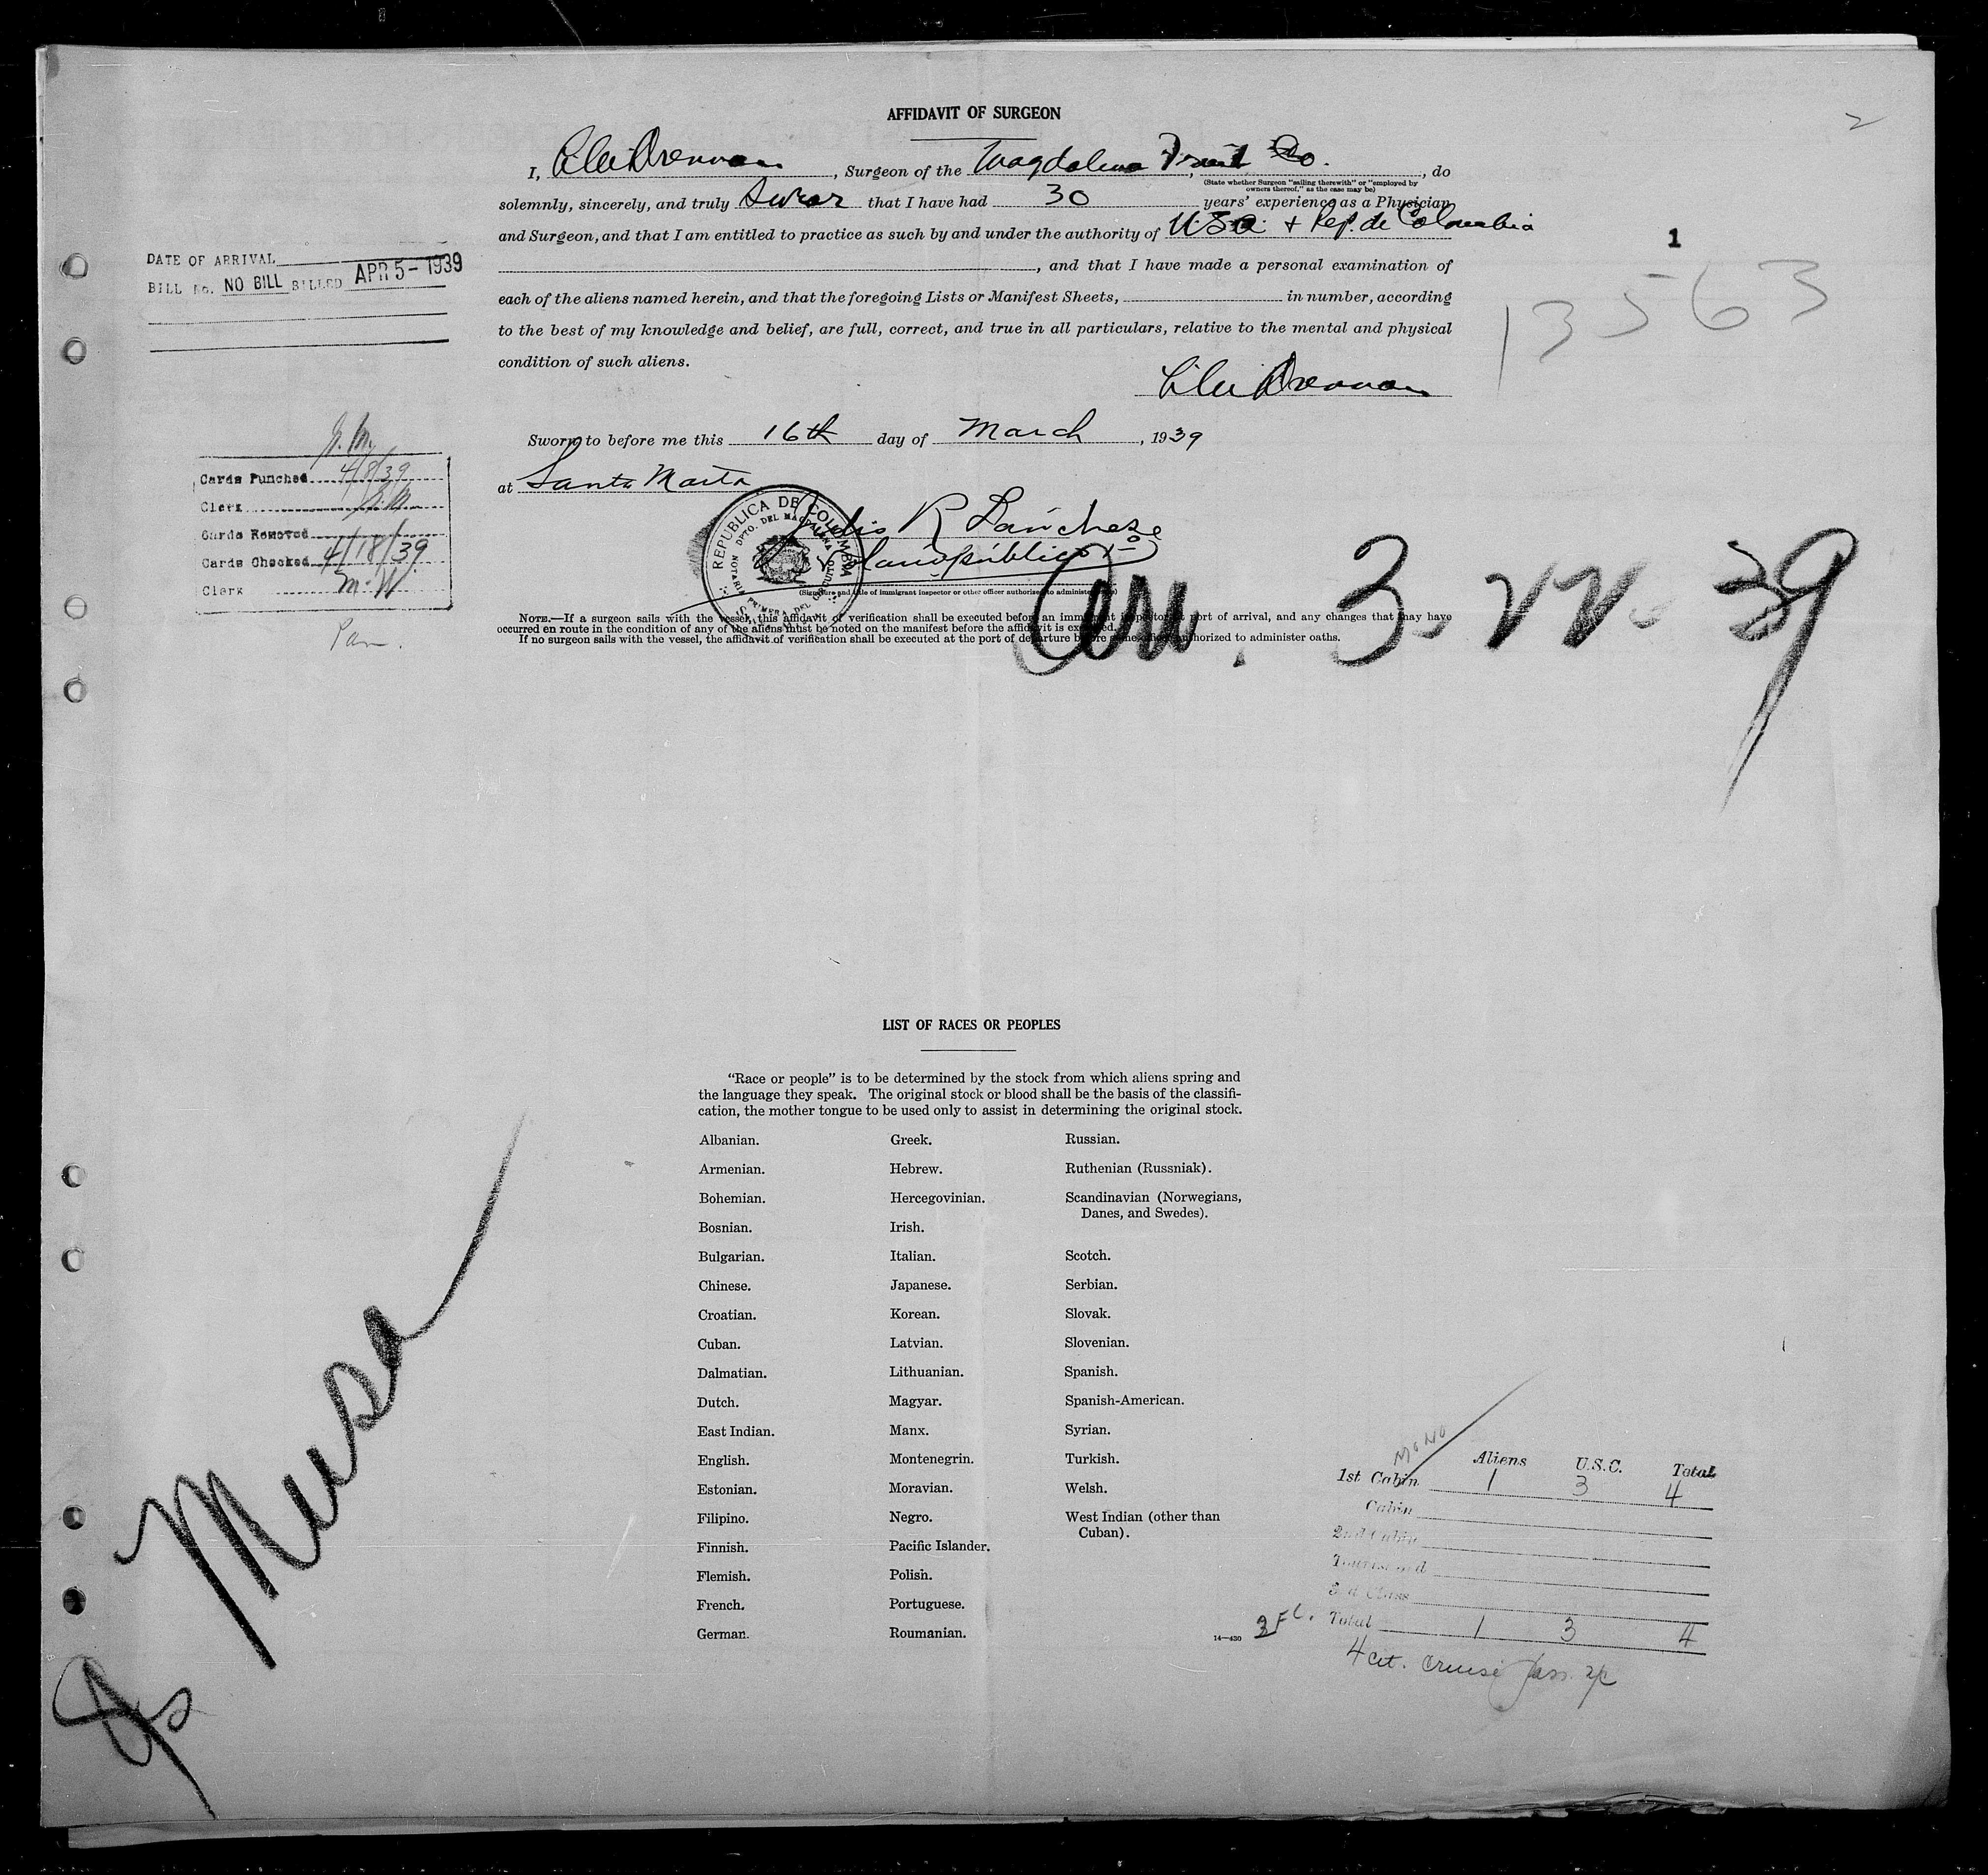 2
AFFIDAVIT OF SURGEON
I, Drennan, Surgeon of the Magdalena Fruit Co., do
(State whether Surgeon "sailing therewith" or "employed by
owners thereof," as the case may be)
solemnly, sincerely, and truly Swear that I have had 30 years' experience as a Physician
and Surgeon, and that I am entitled to practice as such by and under the authority of U.S.A. + Rep. de Colombia
, and that I have made a personal examination of
each of the aliens named herein, and that the foregoing Lists or Manifest Sheets, in number, according
to the best of my knowledge and belief, are full, correct, and true in all particulars, relative to the mental and physical
condition of such aliens.
Drennan
1
13563
DATE OF ARRIVAL
BILL No. NO BILL BILLED APR 5-1939
Sworn to before me this 16th day of March, 1939
at Santa Marta
R Sanchez
REPUBLICA DE COLOMBIA
DPTO. DEL MAGDALENA
NOTARIA PRIMERA DEL CIRCUITO
(Signature and title of immigrant inspector or other officer authorized to administer oaths)
Cards Punched 4/8/39
Clerk
Cards Removed
Cards Checked 4/18/39
Clerk M.W.
NOTE.—If a surgeon sails with the vessel, this affidavit of verification shall be executed before an immigrant inspector at port of arrival, and any changes that may have
occurred en route in the condition of any of the aliens must be noted on the manifest before the affidavit is executed.
If no surgeon sails with the vessel, the affidavit of verification shall be executed at the port of departure before some officer authorized to administer oaths.
3-22-39
LIST OF RACES OR PEOPLES
"Race or people" is to be determined by the stock from which aliens spring and
the language they speak. The original stock or blood shall be the basis of the classifi-
cation, the mother tongue to be used only to assist in determining the original stock.
Albanian.
Armenian.
Bohemian.
Bosnian.
Bulgarian.
Chinese.
Croatian.
Cuban.
Dalmatian.
Dutch.
East Indian.
English.
Estonian.
Filipino.
Finnish.
Flemish.
French.
German.
Greek.
Hebrew.
Hercegovinian.
Irish.
Italian.
Japanese.
Korean.
Latvian.
Lithuanian.
Magyar.
Manx.
Montenegrin.
Moravian.
Negro.
Pacific Islander.
Polish.
Portuguese.
Roumanian.
Russian.
Ruthenian (Russniak).
Scandinavian (Norwegians,
Danes, and Swedes).
Scotch.
Serbian.
Slovak.
Slovenian.
Spanish.
Spanish-American.
Syrian.
Turkish.
Welsh.
West Indian (other than
Cuban).
14—430
Musa
Aliens U.S.C. Total
1st Cabin 1 3 4
Cabin
2nd Cabin
3rd Class
Total 1 3 4
4 cit. cruise pass.